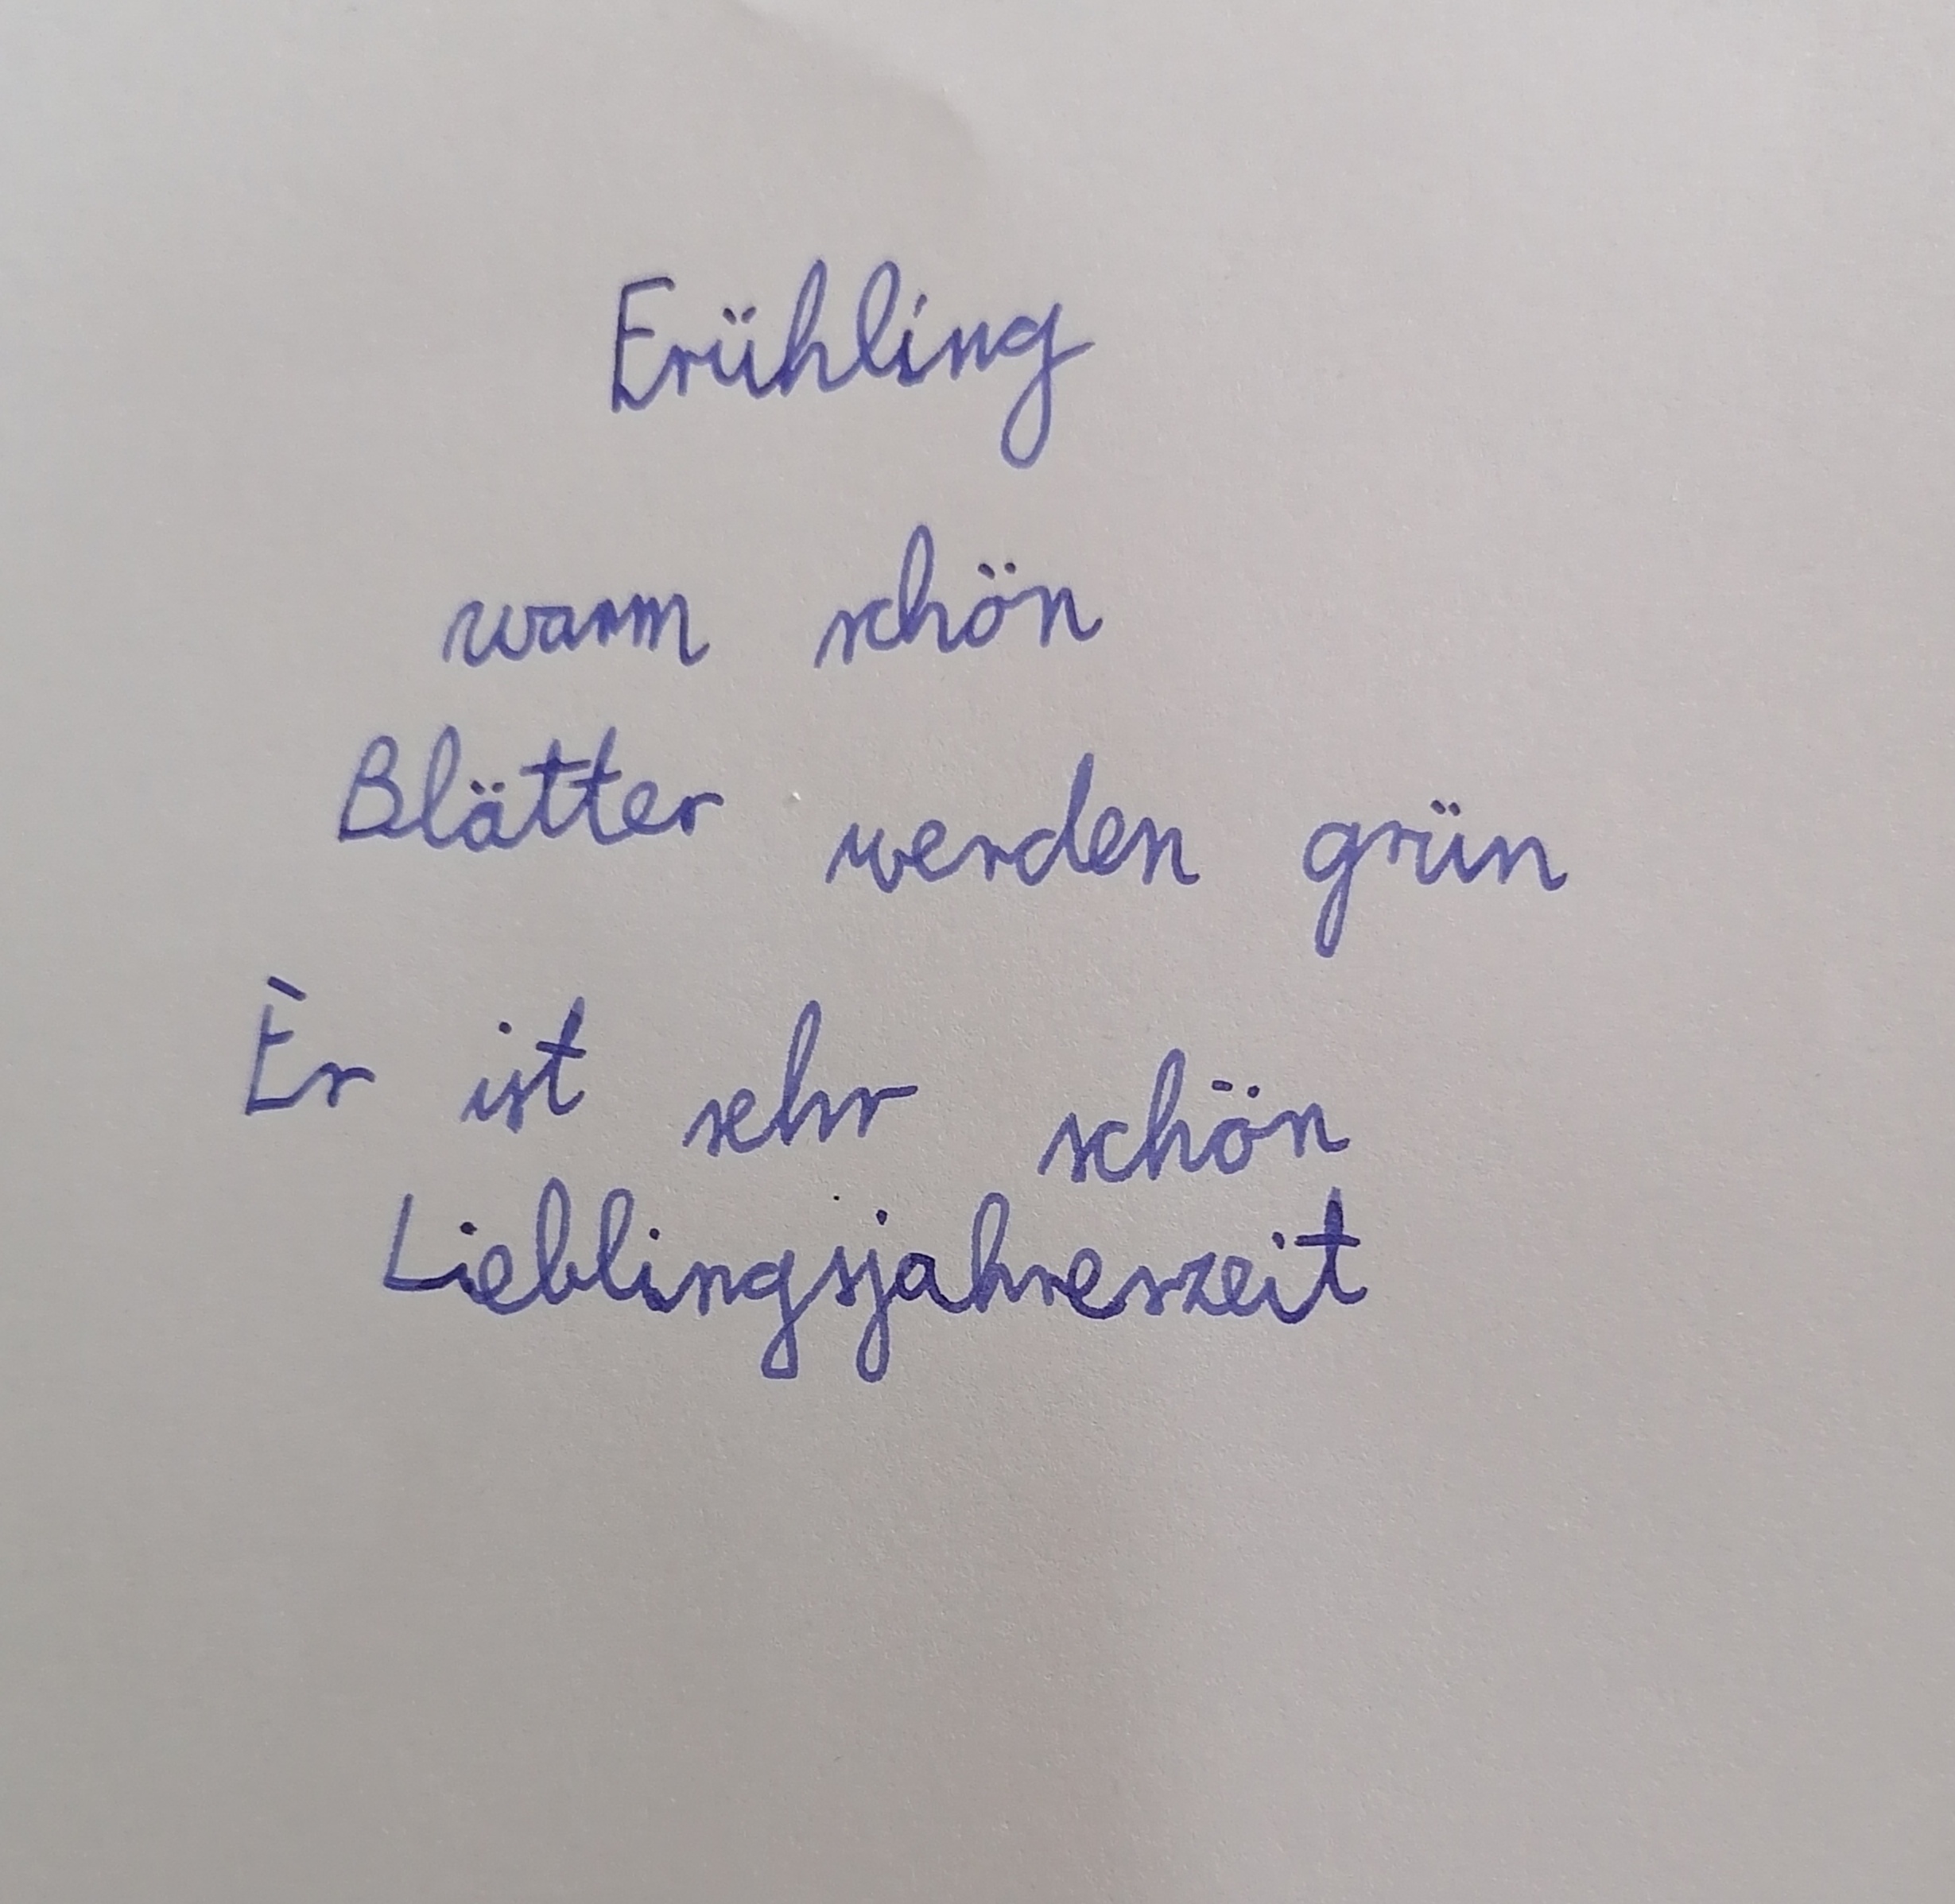 Frühling
warm schön
Blätter werden grün
Er ist sehr schön
Lieblingsjahreszeit